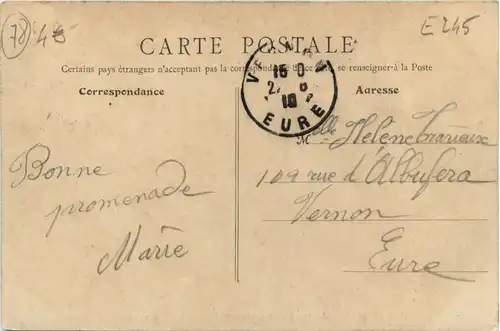 78
E245
CARTE POSTALE
Certains pays étrangers n'acceptant pas la correspondance se renseigner à la Poste
Correspondance
Adresse
VERNON
10
EURE
Bonne
promenade
Marie
Melle Hélène
109 rue d'Albufera
Vernon
Eure